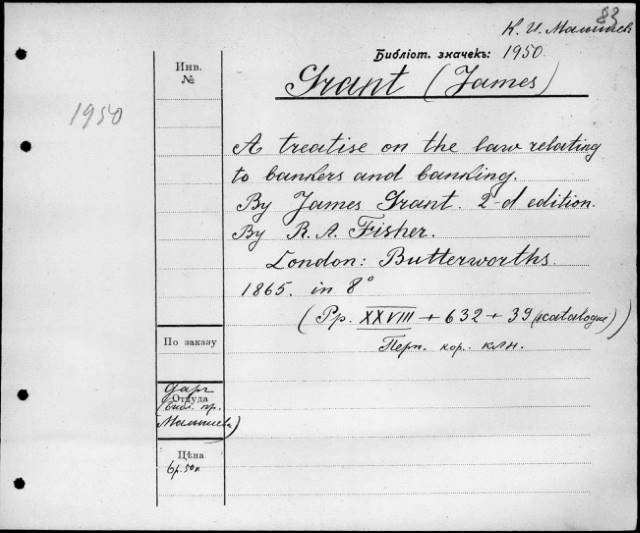 83
К. И. Малышев
Библіот. значекъ: 1950.
Grant (James)
Инв.
№
1950
A treatise on the law relating
to bankers and banking.
By James Grant. 2-d edition.
By R. A. Fisher.
London: Butterworths.
1865. in 8°
(Pp. XXVIII + 632 + 39 (catalogue))
По заказу
Перп. кор. клн.
даръ
Откуда
(библ. пр.
Малышева)
Цѣна
6 р. 50 к